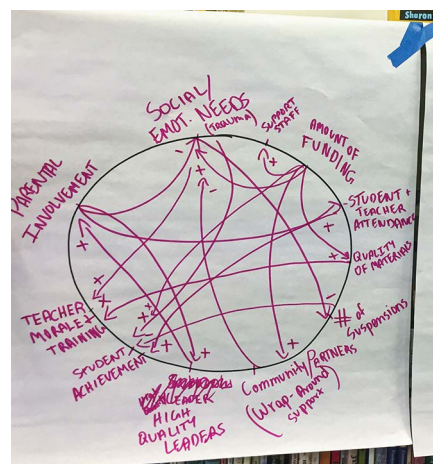 Sharon
SOCIAL/
EMOT. NEEDS
(TRAUMA)
SUPPORT
STAFF
AMOUNT OF
FUNDING
STUDENT +
TEACHER
ATTENDANCE
QUALITY
OF MATERIALS
# of
Suspensions
Community/PARTNERS
(Wrap-Around
Support)
LEADER
HIGH
QUALITY
LEADERS
STUDENT
ACHIEVEMENT
TEACHER
MORALE +
TRAINING
PARENTAL
INVOLVEMENT